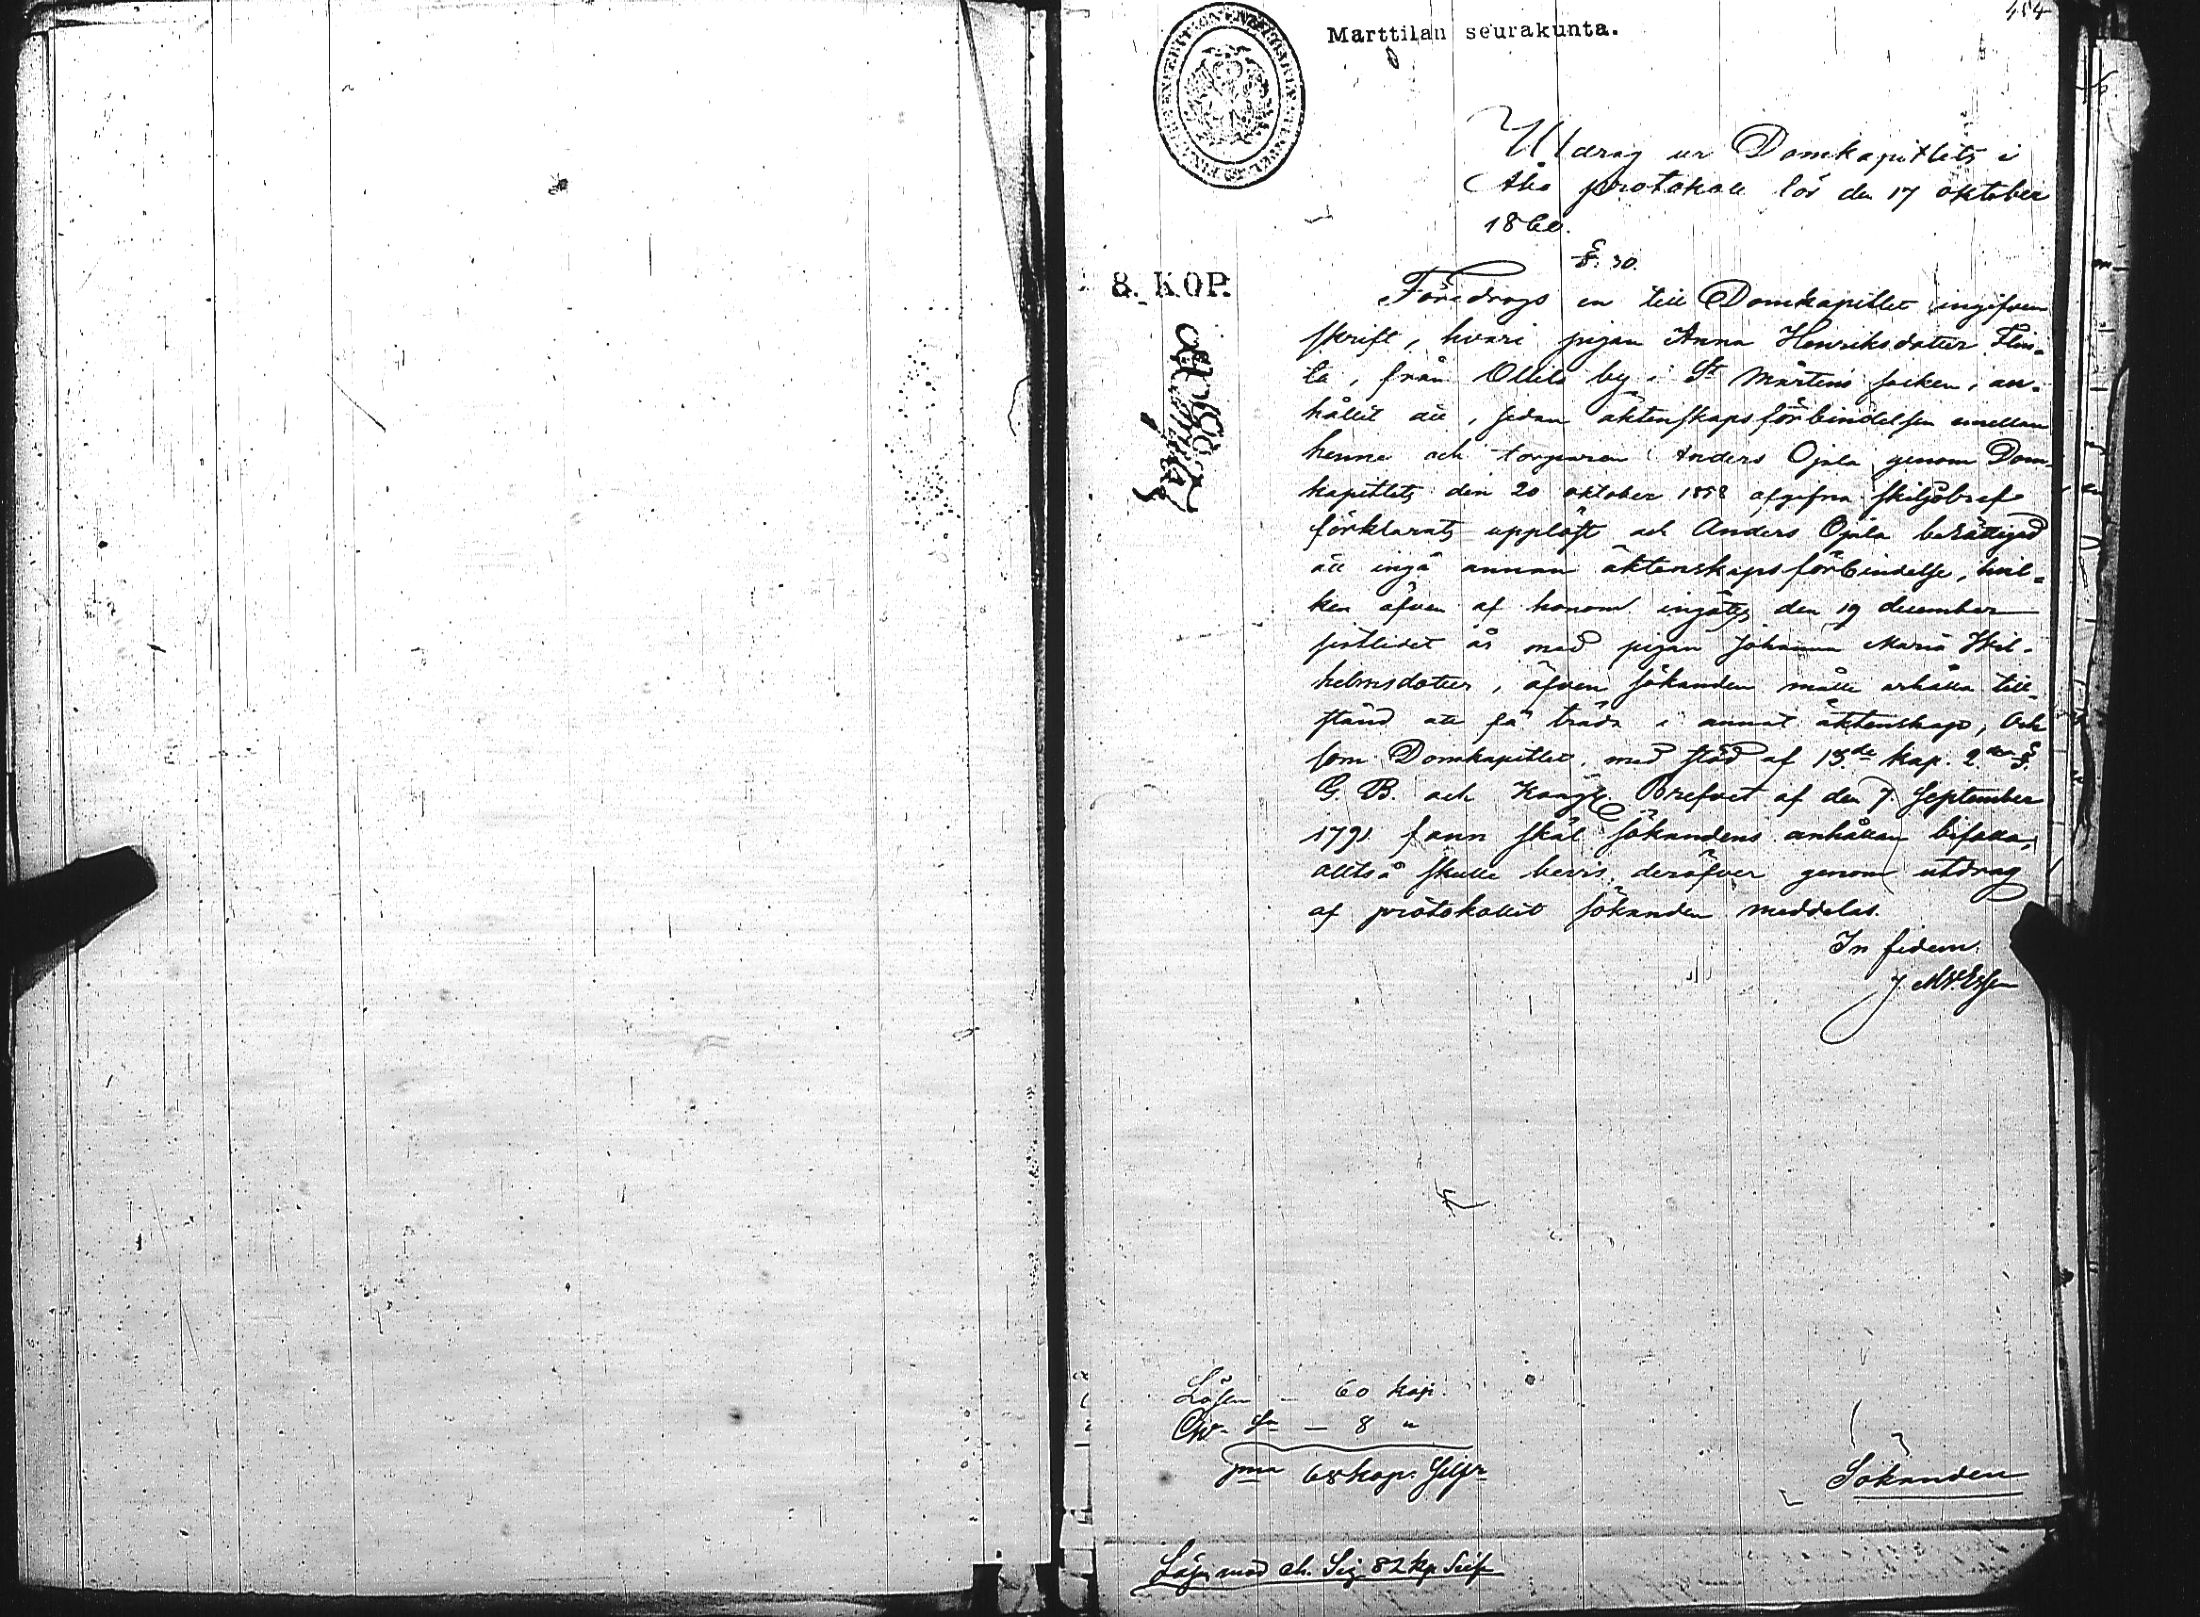 454
Marttilan seurakunta.
Utdrag ur Domkapitlets i
Åbo protokoll för den 17 oktober
1860.
§. 30.
8. KOP.
Föredrogs en till Domkapitlet ingifven
skrift, hvari pigan Anna Henriksdotter Flin-
ta, från Ollila by i St Mårtens socken, an-
hållit att, sedan äktenskapsförbindelsen emellan
henne och torparen Anders Ojala genom Dom-
kapitlets den 20 oktober 1858 afgifna skiljobref
förklarats upplöst och Anders Ojala berättigad
att ingå annan äktenskapsförbindelse, hvil-
ken äfven af honom ingåtts den 19 december
sistlidet år med pigan Johanna Maria Wil-
helmsdotter, äfven sökanden måtte erhålla till-
stånd att få träda i annat äktenskap; Och
som Domkapitlet, med stöd af 13de kap. 2 §.
G. B. och Kongl. Brefvet af den 7 September
1791 fann skäl sökandens anhållan bifalla,
alltså skulle bevis deröfver genom utdrag
af protokollet sökanden meddelas.
In fidem
Lösen – 60 kop.
– 8 "
68 kop. Silfr
Sökanden
82 kp Silf